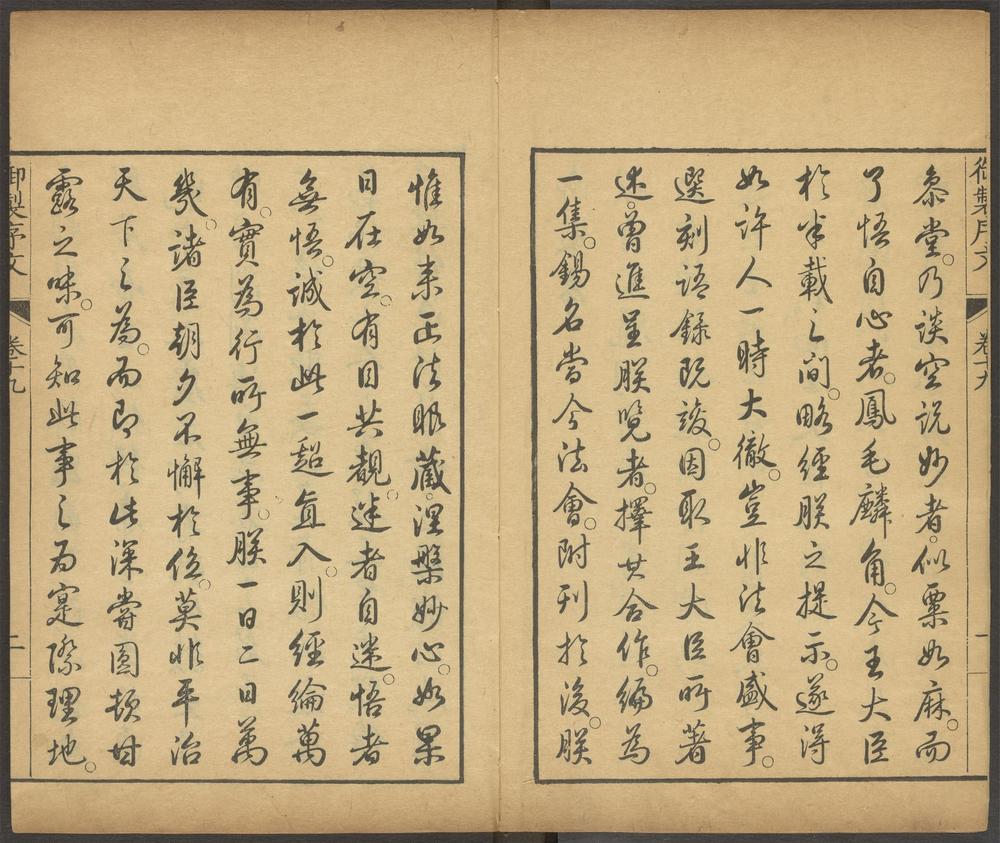 御製序文 卷十九 一
叅堂。乃談空说妙者。似粟如麻。而
了悟自心者。鳳毛麟角。今王大臣
於半載之间。略經朕之提示。遂得
如许人一時大徹。豈非法會盛事。
選刻语録既竣。因取王大臣所著
述。曾進呈朕覽者。擇其合作。编為
一集。锡名當今法會。附刊於後。朕
惟如来正法眼藏。涅槃妙心。如杲
日在空。有目共覩。迷者自迷。悟者
無悟。诚於此一超直入。则經綸萬
有。實為行所無事。朕一日二日萬
幾。諸臣朝夕不懈於位。莫非平治
天下之為。而即於此深嘗圓頓甘
露之味。可知此事之為寔際理地。
御製序文 卷十九 二